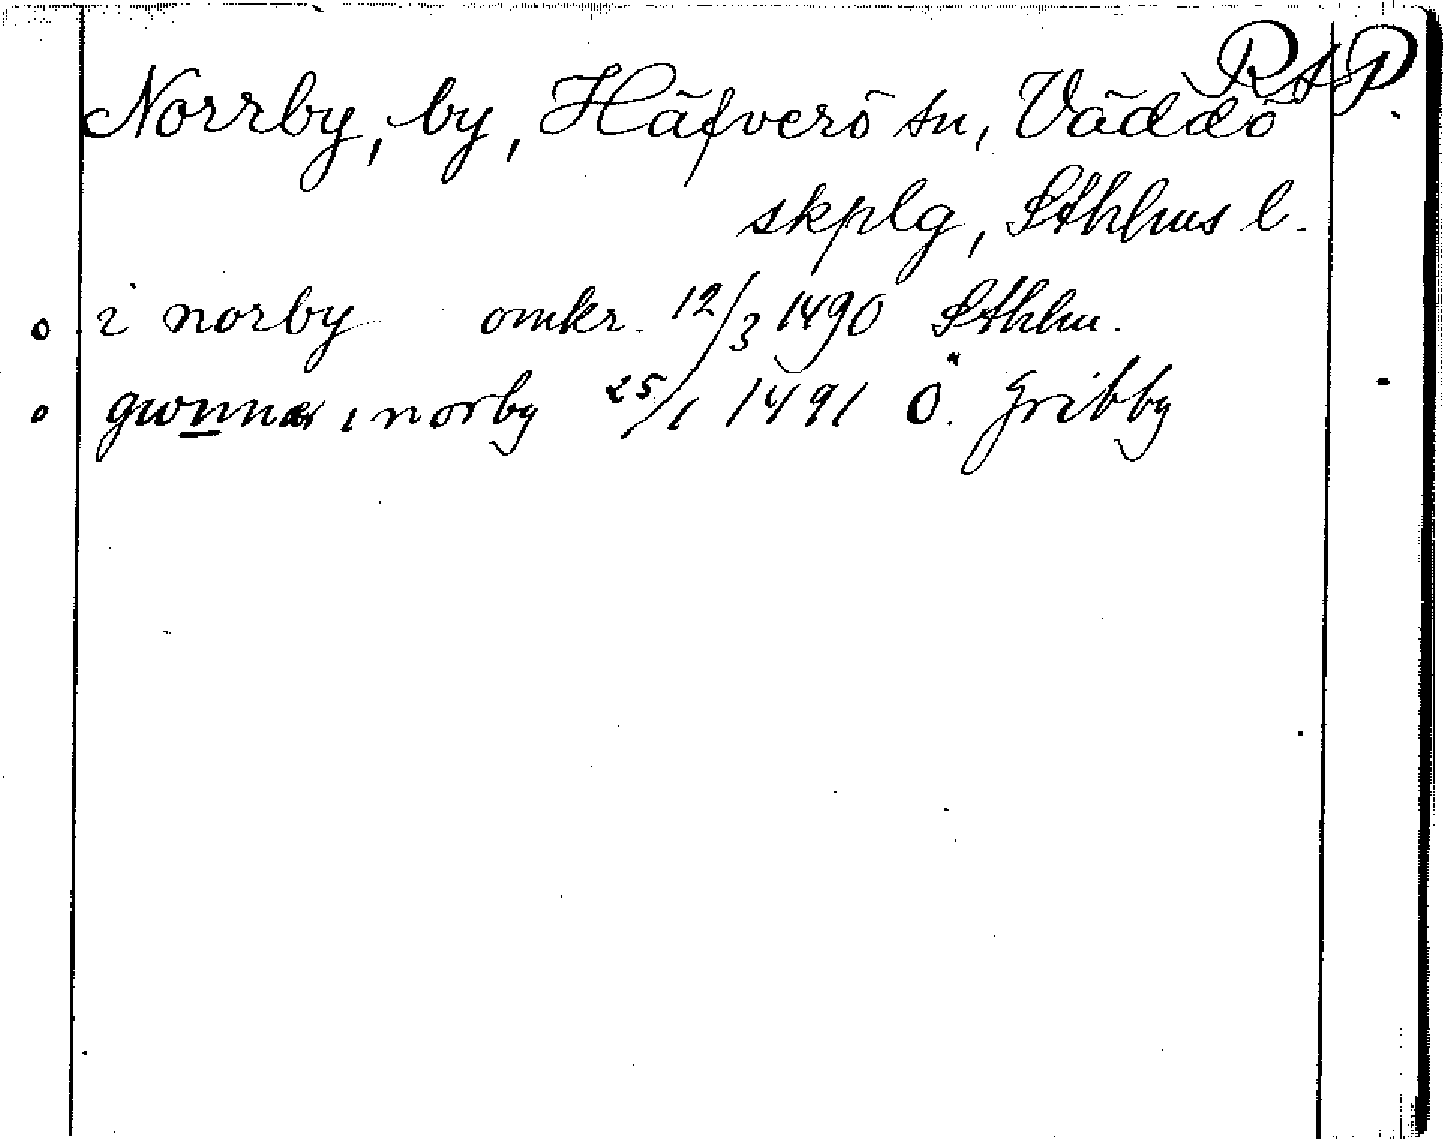 RAP.
Norrby, by, Häfverö sn, Väddö
skplg, Sthlms l.
o i norby omkr. 12/3 1490 Sthlm.
o gwnnar i norby 25/1 1491 Ö. Gribby